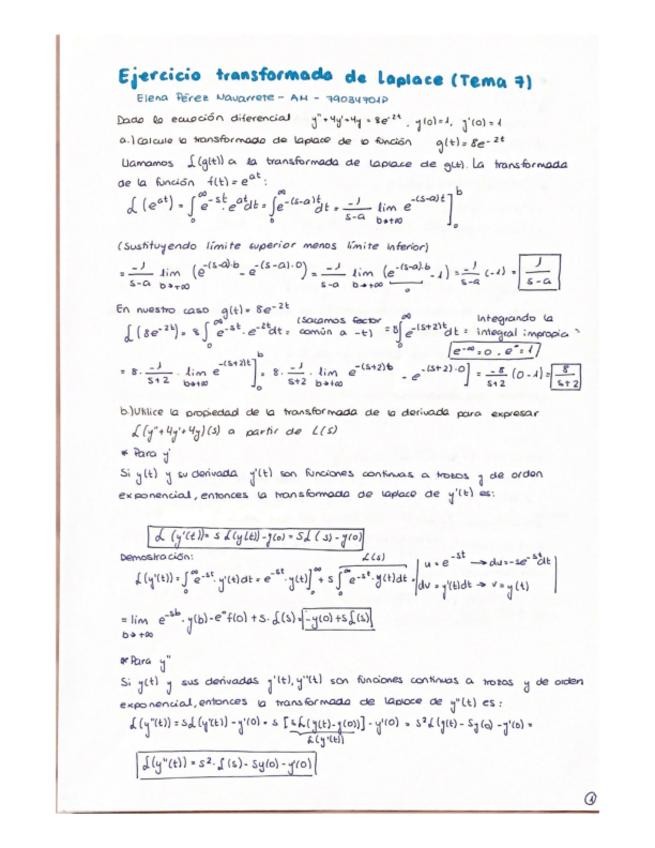 Ejercicio transformada de Laplace (Tema 7)
Elena Pérez Navarrete - AM - 79084701D
Dada la ecuación diferencial y''+4y'+4y = 8e^-2t, y(0)=1, y'(0)=1
a.) Calcule la transformada de Laplace de la función g(t)=8e^-2t
Llamamos L(g(t)) a la transformada de Laplace de g(t). La transformada
de la función f(t)=e^at:
L(e^at) = ∫_0^∞ e^-st · e^at dt = ∫_0^∞ e^-(s-a)t dt = -1/(s-a) lim_{b→+∞} e^-(s-a)t ]_0^b
(Sustituyendo límite superior menos límite inferior)
= -1/(s-a) lim_{b→+∞} (e^-(s-a)·b - e^-(s-a)·0) = -1/(s-a) lim_{b→+∞} (e^-(s-a)·b - 1) = -1/(s-a) (-1) = 1/(s-a)
En nuestro caso g(t) = 8e^-2t
L(8e^-2t) = 8∫_0^∞ e^-st · e^-2t dt = (Sacamos factor común a -t) = 8∫_0^∞ e^-(s+2)t dt = Integrando la integral impropia =
e^-∞ = 0, e^0 = 1
= 8 · -1/(s+2) · lim_{b→+∞} e^-(s+2)t ]_0^b = 8 · -1/(s+2) · lim_{b→+∞} e^-(s+2)b - e^-(s+2)·0 ] = -8/(s+2) (0-1) = 8/(s+2)
b.) Utilice la propiedad de la transformada de la derivada para expresar
L(y''+4y'+4y)(s) a partir de L(s)
* Para y'
Si y(t) y su derivada y'(t) son funciones continuas a trozos y de orden
exponencial, entonces la transformada de Laplace de y'(t) es:
L(y'(t)) = s L(y(t)) - y(0) = sL(s) - y(0)
Demostración:
L(y'(t)) = ∫_0^∞ e^-st · y'(t)dt = e^-st · y(t) ]_0^∞ + s ∫_0^∞ e^-st · y(t)dt = L(s) | u = e^-st → du = -se^-st dt
dv = y'(t)dt → v = y(t) |
= lim_{b→+∞} e^-sb · y(b) - e^0 f(0) + s · L(s) = -y(0) + sL(s)
* Para y''
Si y(t) y sus derivadas y'(t), y''(t) son funciones continuas a trozos y de orden
exponencial, entonces la transformada de Laplace de y''(t) es:
L(y''(t)) = sL(y'(t)) - y'(0) = s [sL(y(t)-y(0))] - y'(0) = s²L(y(t) - Sy(0) - y'(0) =
L(y'(t))
L(y''(t)) = s² · L(s) - Sy(0) - y'(0)
1